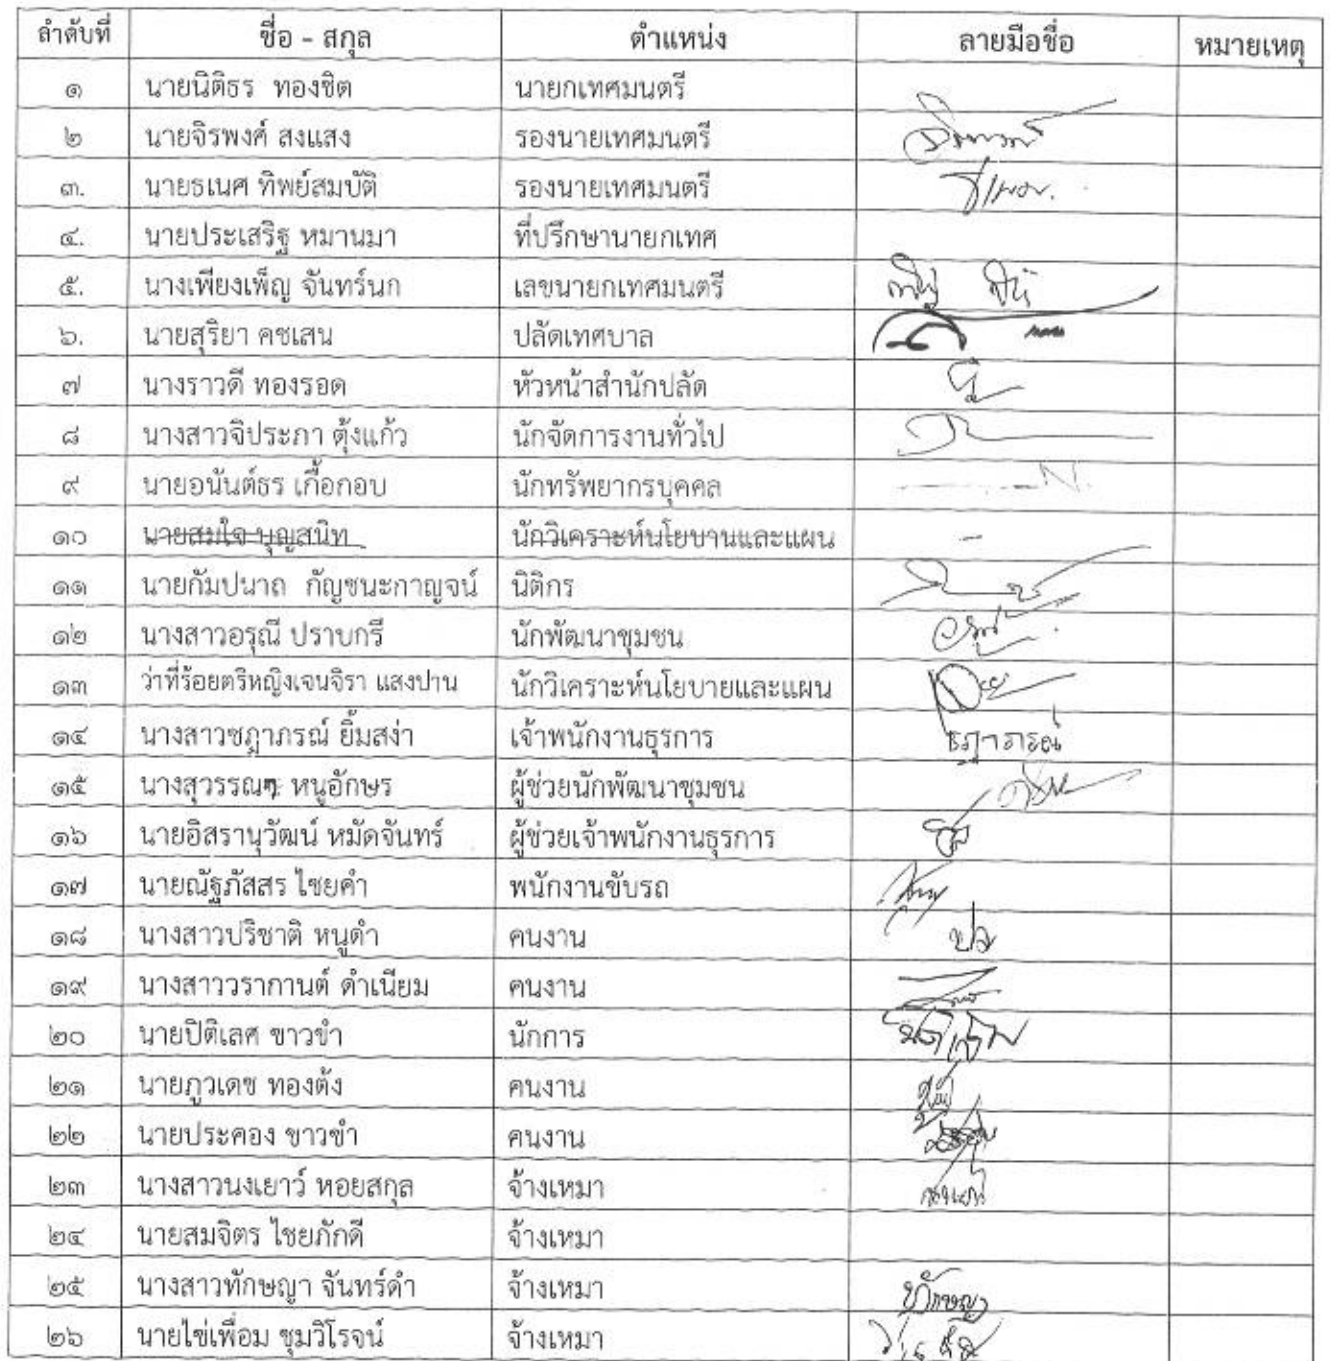 ลำดับที่ ชื่อ - สกุล ตำแหน่ง ลายมือชื่อ หมายเหตุ
๑ นายนิติธร ทองชิต นายกเทศมนตรี
๒ นายจิรพงศ์ สงแสง รองนายเทศมนตรี
๓. นายธเนศ ทิพย์สมบัติ รองนายเทศมนตรี
๔. นายประเสริฐ หมานมา ที่ปรึกษานายกเทศ
๕. นางเพียงเพ็ญ จันทร์นก เลขนายกเทศมนตรี
๖. นายสุริยา คชเสน ปลัดเทศบาล
๗ นางราวดี ทองรอด หัวหน้าสำนักปลัด
๘ นางสาวจิประภา ตุ้งแก้ว นักจัดการงานทั่วไป
๙ นายอนันต์ธร เกื้อกอบ นักทรัพยากรบุคคล
๑๐ นายสมใจ บุญสนิท นักวิเคราะห์นโยบานและแผน -
๑๑ นายกัมปนาถ กัญชนะกาญจน์ นิติกร
๑๒ นางสาวอรุณี ปราบกรี นักพัฒนาชุมชน
๑๓ ว่าที่ร้อยตรีหญิงเจนจิรา แสงปาน นักวิเคราะห์นโยบายและแผน
๑๔ นางสาวชฎาภรณ์ ยิ้มสง่า เจ้าพนักงานธุรการ ชฎาภรณ์
๑๕ นางสุวรรณา หนูอักษร ผู้ช่วยนักพัฒนาชุมชน
๑๖ นายอิสรานุวัฒน์ หมัดจันทร์ ผู้ช่วยเจ้าพนักงานธุรการ
๑๗ นายณัฐภัสสร ไชยคำ พนักงานขับรถ
๑๘ นางสาวปริชาติ หนูดำ คนงาน
๑๙ นางสาววรากานต์ ดำเนียม คนงาน
๒๐ นายปิติเลศ ขาวขำ นักการ
๒๑ นายภูวเดช ทองตั้ง คนงาน
๒๒ นายประคอง ขาวขำ คนงาน
๒๓ นางสาวนงเยาว์ หอยสกุล จ้างเหมา
๒๔ นายสมจิตร ไชยภักดี จ้างเหมา
๒๕ นางสาวทักษญา จันทร์ดำ จ้างเหมา ทักษญา
๒๖ นายไข่เพื่อม ชุมวิโรจน์ จ้างเหมา